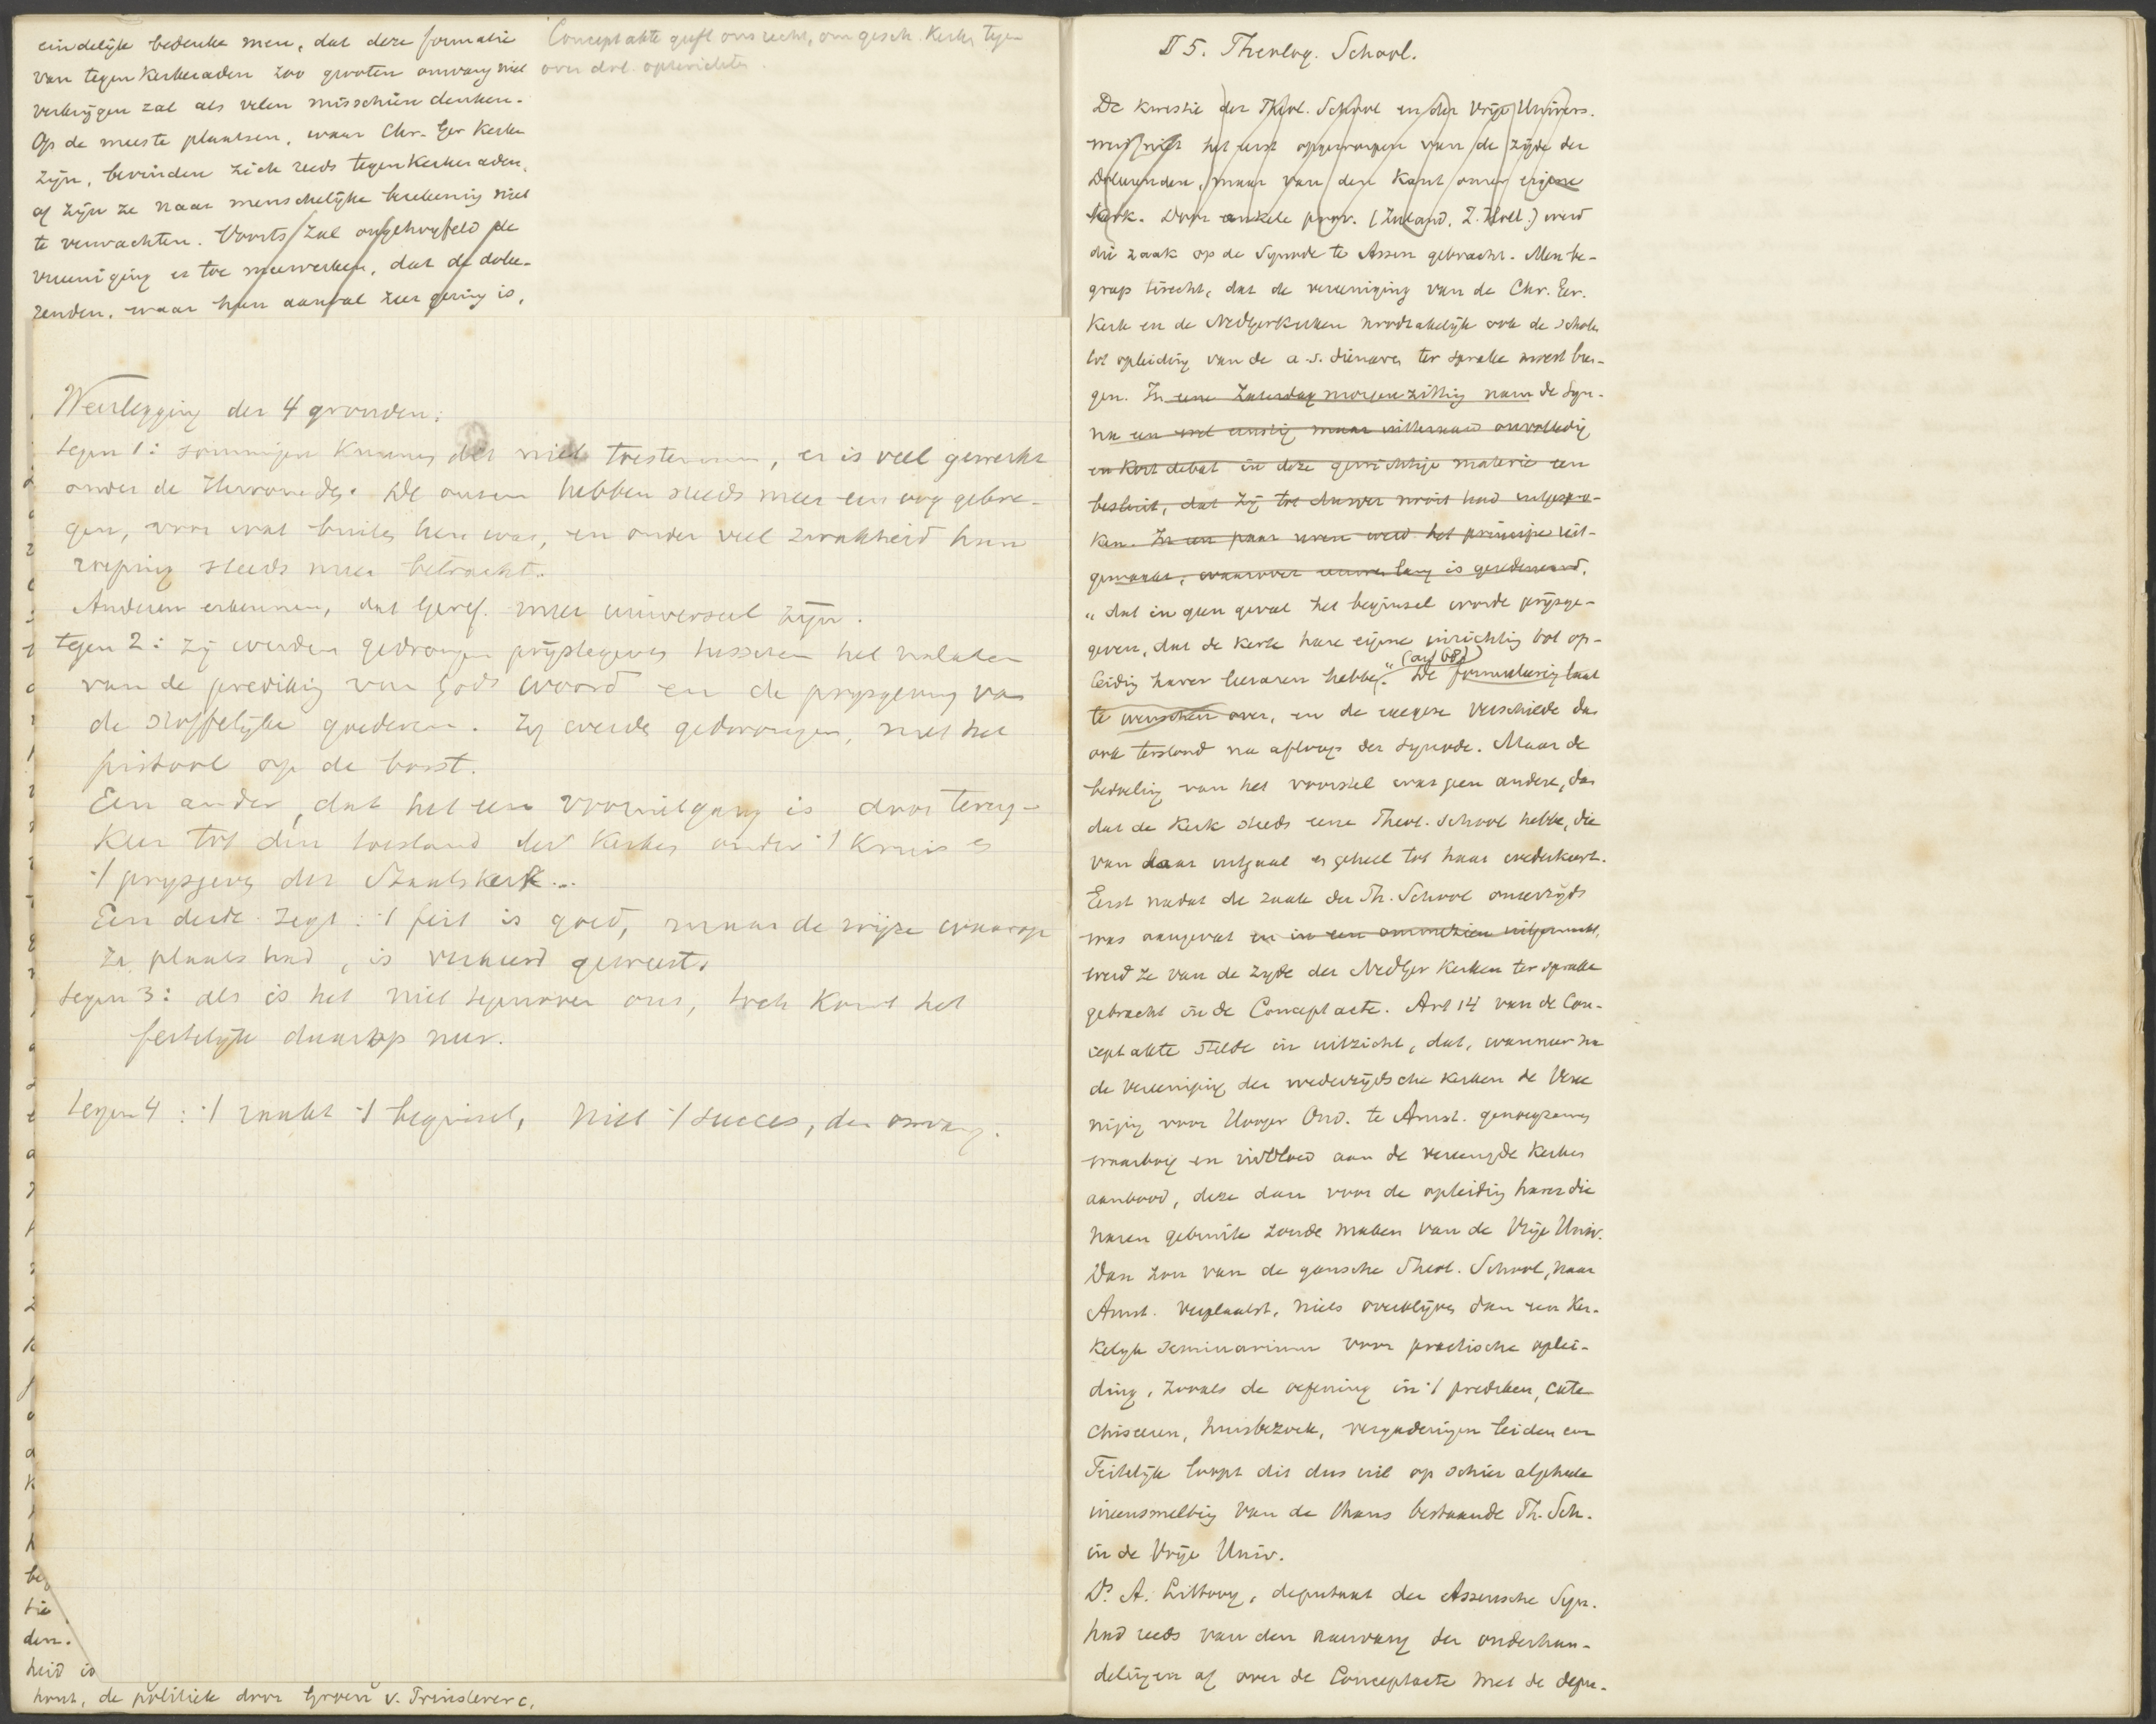 eindelijk bedenke men, dat deze formatie
van tegenkerkeraden zoo grooten omvang niet
verkrijgen zal als velen misschien denken.
Op de meeste plaatsen, waar Chr. Ger Kerken
zijn, bevinden zich reeds tegenkerkeraden,
of zijn ze naar menschelijke berekening niet
te verwachten. Voorts zal ongetwyfeld de
vereeniging er toe meewerken, dat de dolee-
renden, waar hun aantal zeer gering is,
Conceptakte geeft ons recht, om gesch. Kerken tegen
over dol. opterichten.
Weerlegging der 4 gronden:
tegen 1: sommigen kunnen dit niet toestemmen, er is veel gewerkt
onder de Hervormden. De onzen hebben steeds meer een oog gekre-
gen, voor wat buiten hen was, en onder veel zwakheid hun
roeping steeds meer betracht.
Anderen erkennen, dat Geref. meer universeel zijn.
tegen 2: Zij werden gedrongen prijstegeven tusschen het verlaten
van de prediking van Gods woord en de prysgeving van
de stoffelijke goederen. Zy werden gedwongen, met het
pistool op de borst.
Een ander, dat het een vooruitgang is door terug-
keer tot den toestand der Kerken onder 't Kruis en
't prysgeven der Staatskerk...
Een derde zegt: 't feit is goed, maar de wijze waarop
ze plaats had, is verkeerd geweest.
tegen 3: als is het niet tegenover ons, toch komt het
feitelijk daarop neer.
tegen 4: 't raakt 't beginsel, niet 't succes, den omvang.
bez
tie
den.
heid is
komt, de politiek door Groen v. Prinsterer c.
II 5. Theolog. School.
De kwestie der Theol. School en der Vrije Univers.
werd niet het eerst opgeworpen van de zijde der
Doleerenden, maar van den kant onzer eigene
Kerk. Door enkele prov. (Zeeland, Z. Holl.) werd
die zaak op de Synode te Assen gebracht. Men be-
greep terecht, dat de vereeniging van de Chr. Ger.
Kerk en de NedGerKerken noodzakelijk ook de school
tot opleiding van de a.s. dienaren ter sprake moest bren-
gen. In eene Zaterdag morgen zitting nam de Syn.
na een wel ernstig maar uitteraard onvolledig
en kort debat in deze gewichtige materie een
besluit, dat zij tot dusver nooit had uitgespro-
ken. In een paar uren werd het principe uit-
gemaakt, waarover eeuwen lang is geredeneerd.
„dat in geen geval het beginsel worde prijsge-
geven, dat de Kerk hare eigene inrichting tot op-
leiding harer leeraren hebbe." (art 68) De formuleering laat
te wenschen over, en de meeningen verschilden dan
ook terstond na afloop der synode. Maar de
bedoeling van het voorstel was geen andere, dan
dat de Kerk steeds eene Theol. School hebbe, die
van daar uitgaat en geheel tot haar wederkeert.
Eerst nadat de zaak der Th. School onzerzijds
was aangevat en in een ommezien uitgemaakt,
werd ze van de zyde der NedGer Kerken ter sprake
gebracht in de Conceptacte. Art 14 van de Con-
ceptakte stelde in uitzicht, dat, wanneer na
de vereeniging der wederzijdsche Kerken de Veree
niging voor Hooger Ond. te Amst. genoegzamen
waarborg en invloed aan de vereenigde Kerken
aanbood, deze dan voor de opleiding harer die
naren gebruik zoude maken van de Vrije Univ.
Dan zou van de gansche Theol. School, naar
Amst. verplaatst, niets overblijven dan een Ker-
kelijk Seminarium voor practische oplei-
ding, zooals de oefening in 't prediken, cate
chiseeren, huisbezoek, vergaderingen leiden enz
Feitelijk loopt dit dus uit op schier algeheele
ineensmelting van de thans bestaande Th. Sch.
in de Vrije Univ.
Ds A. Littooy, deputaat der Assensche Syn.
had reeds van den aanvang der onderhan-
delingen af over de Conceptacte met de depu-